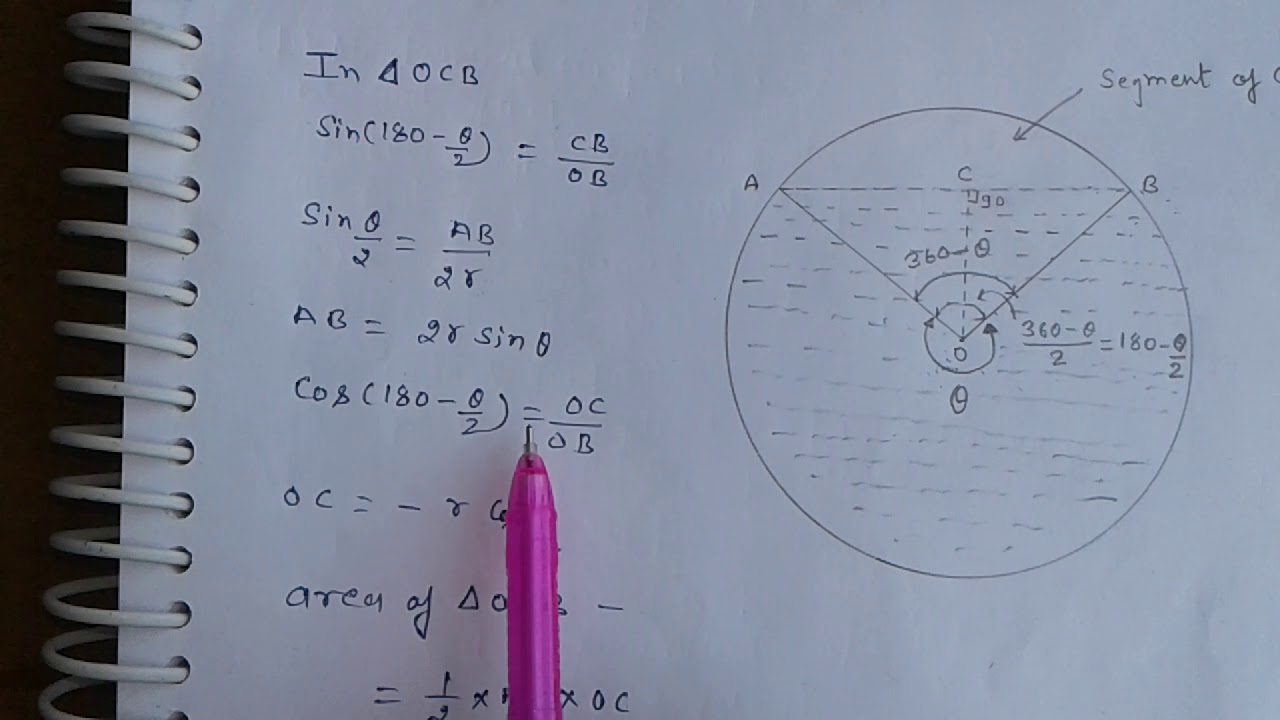 In Δ OCB
Sin(180 - θ/2) = CB/OB
Sin θ/2 = AB/2r
AB = 2r sin θ
Cos(180 - θ/2) = OC/OB
OC = - r
area of Δ
= 1/2 × × OC
Segment of
A
C
B
90
360-θ
(360-θ)/2 = 180-θ/2
O
θ